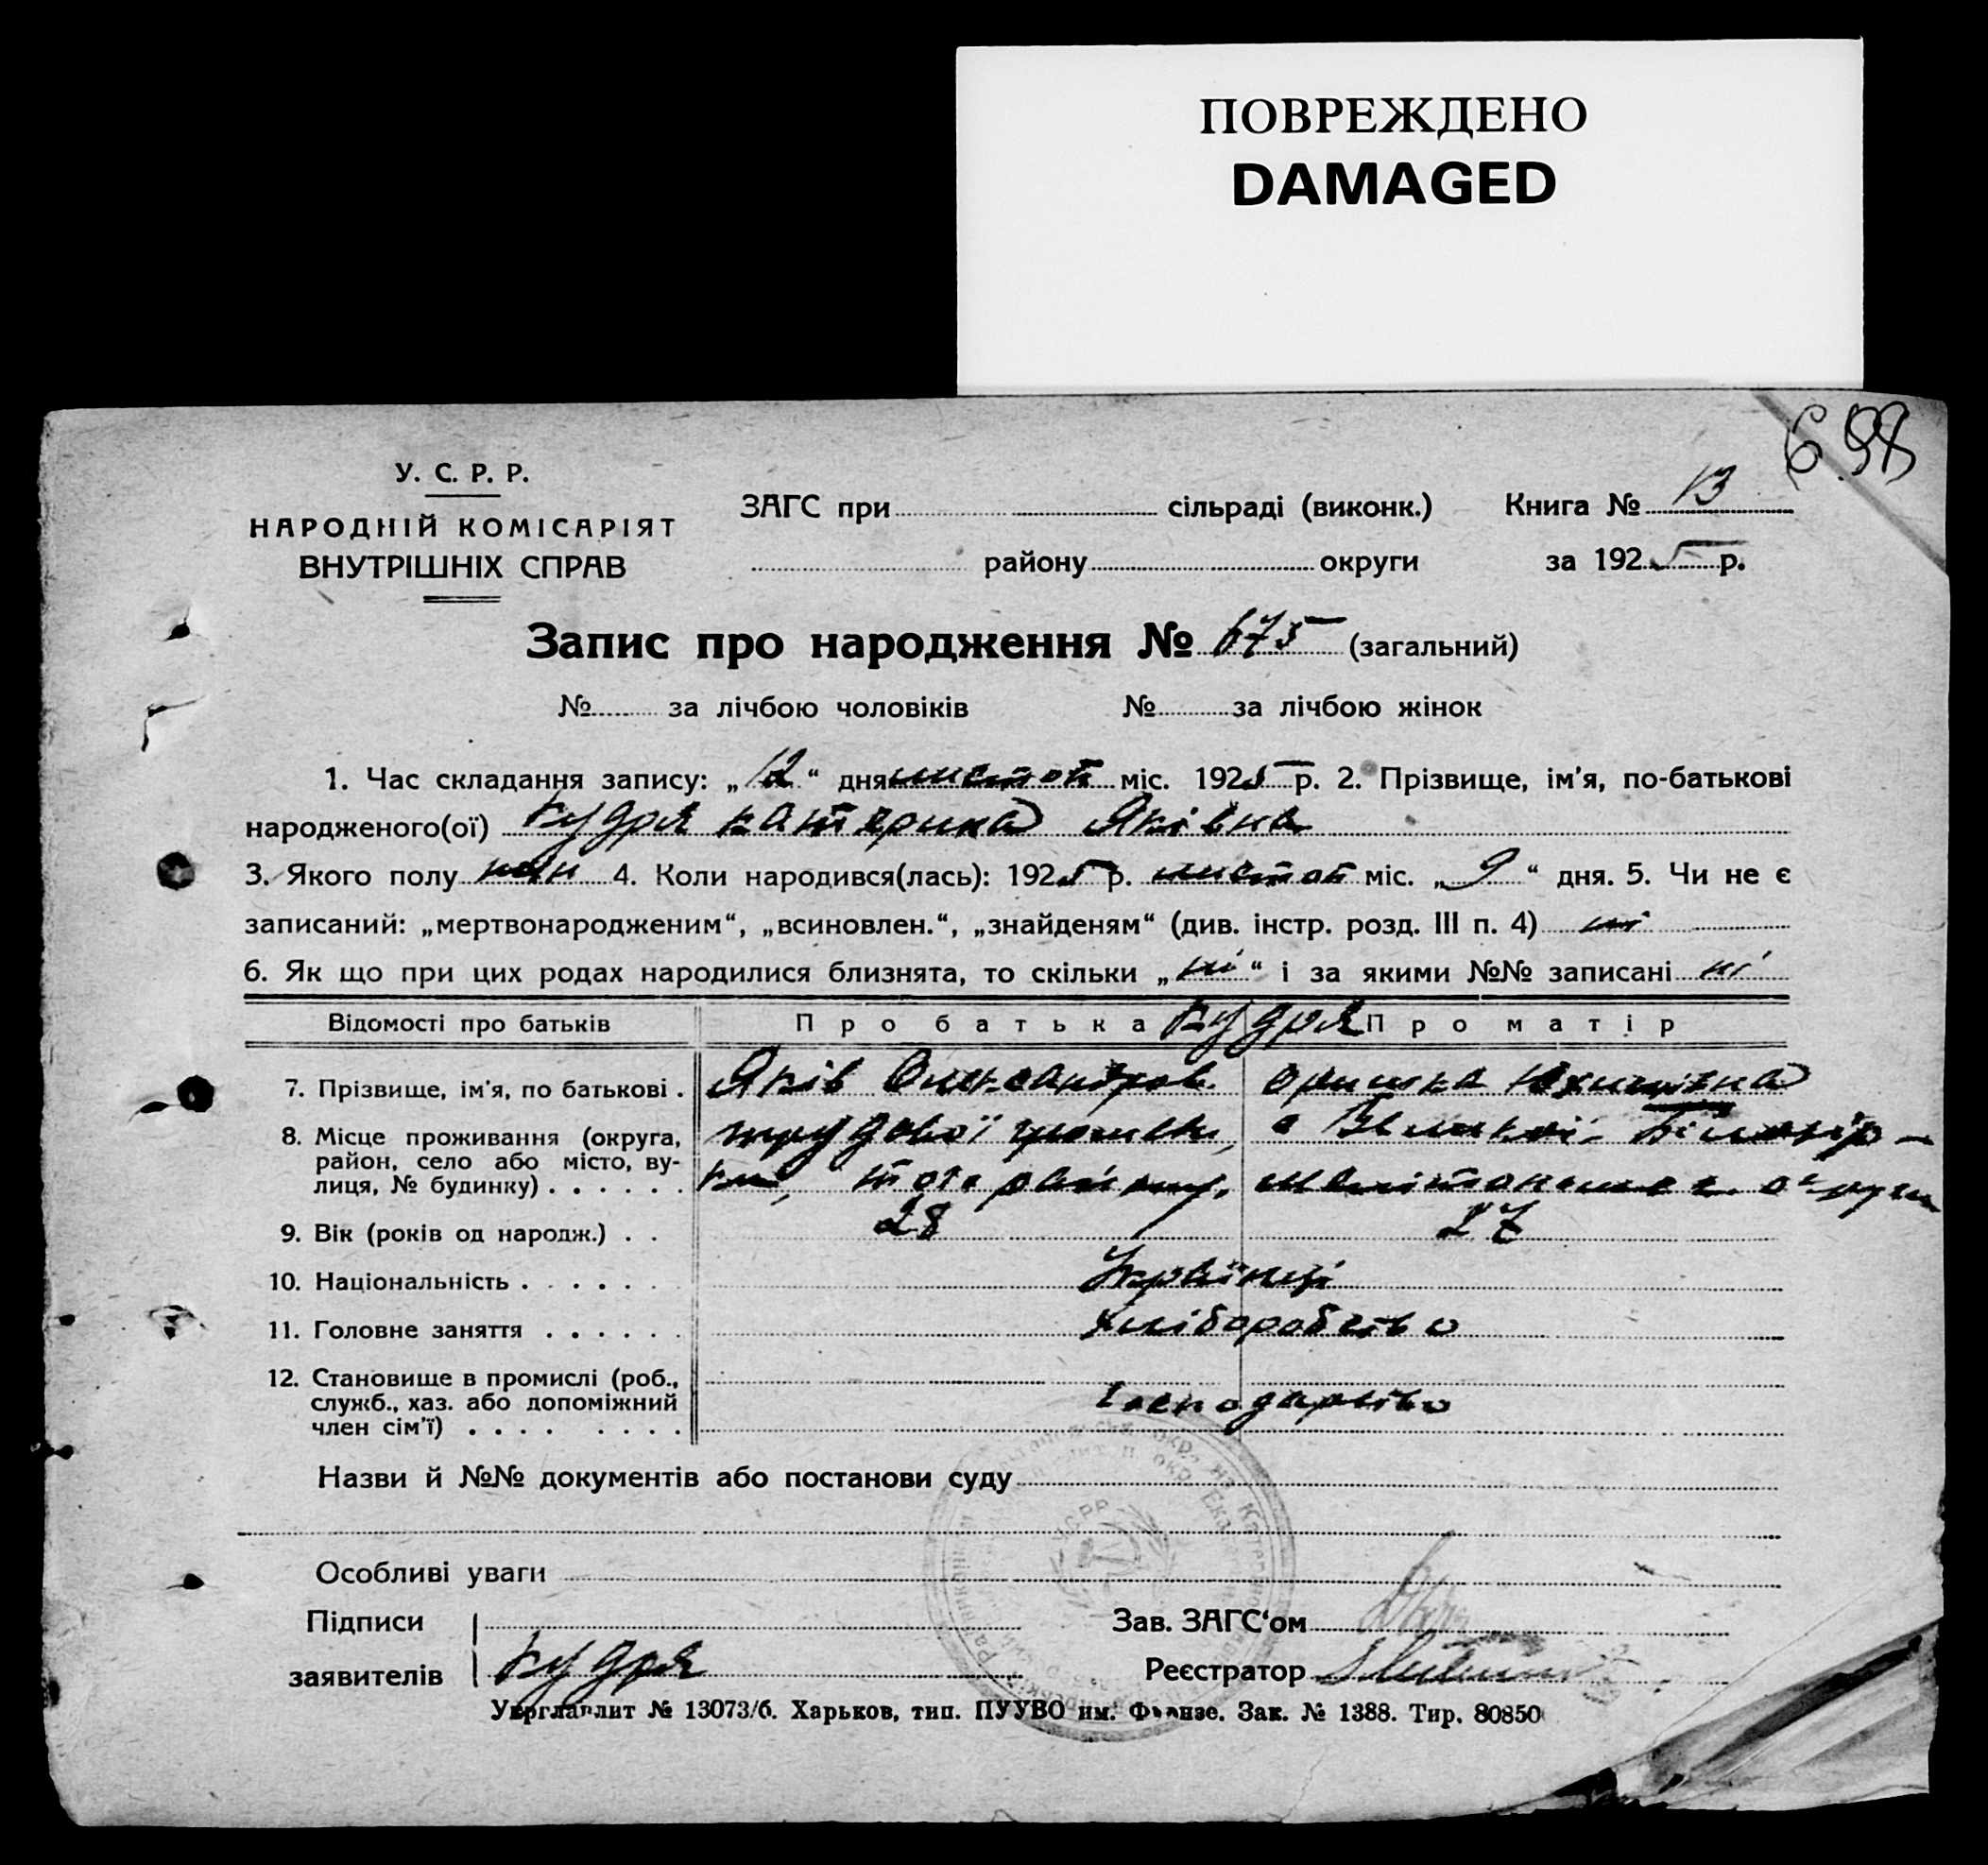 ПОВРЕЖДЕНО
DAMAGED
698
У. С. Р. Р.
НАРОДНІЙ КОМІСАРІЯТ
ВНУТРІШНІХ СПРАВ
ЗАГС при сільраді (виконк.) Книга № 13
району округи за 1925 р.
Запис про народження № 675 (загальний)
№ за лічбою чоловіків № за лічбою жінок
1. Час складання запису: „12“ дня листоп міс. 1925 р. 2. Прізвище, ім'я, по-батькові
народженого(ої) Кудря Катерина Яківна
3. Якого полу жін 4. Коли народився(лась): 1925 р. листоп міс. „9“ дня. 5. Чи не є
записаний: „мертвонародженим“, „всиновлен.“, „знайденям“ (див. інстр. розд. III п. 4) ні
6. Як що при цих родах народилися близнята, то скільки „ні“ і за якими №№ записані ні
Відомості про батьків Про батька Кудря Про матір
7. Прізвище, ім'я, по батькові . Яків Олександров. Оришка Юхимівна
8. Місце проживання (округа, трудової с Великої Білозір-
район, село або місто, ву-
лиця, № будинку) . . . . . . ки, того району, Мелітопільск. округи
9. Вік (років од народж.) . . 28 27
10. Національність . . . . . . Українці
11. Головне заняття . . . . . . Хліборобство
12. Становище в промислі (роб.,
служб., хаз. або допоміжний Господарство
член сім'ї) . . . . . . . .
Назви й №№ документів або постанови суду
УСРР
Особливі уваги
Підписи Зав. ЗАГС‘ом
заявителів Кудря Реєстратор
Укрглавлит № 13073/6. Харьков, тип. ПУУВО им. Фрунзе. Зак. № 1388. Тир. 80850